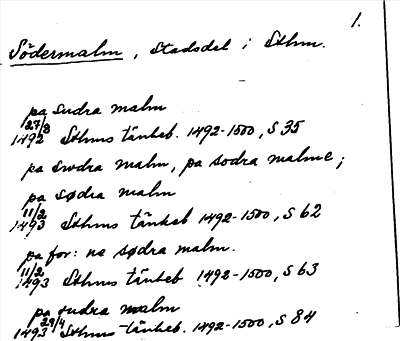 1.
Södermalm, Stadsdel i Sthm.
pa sudra malm
27/8 1492 Sthms tänkeb. 1492-1500, S 35
pa swdra malm, pa sodra malme;
pa sødra malm
11/2 1493 Sthms tänkeb 1492-1500, S 62
pa for: ne sødra malm.
11/2 1493 Sthms tänkeb 1492-1500, S 63
pa sudra malm
29/4 1493 Sthms tänkeb. 1492-1500, S 84